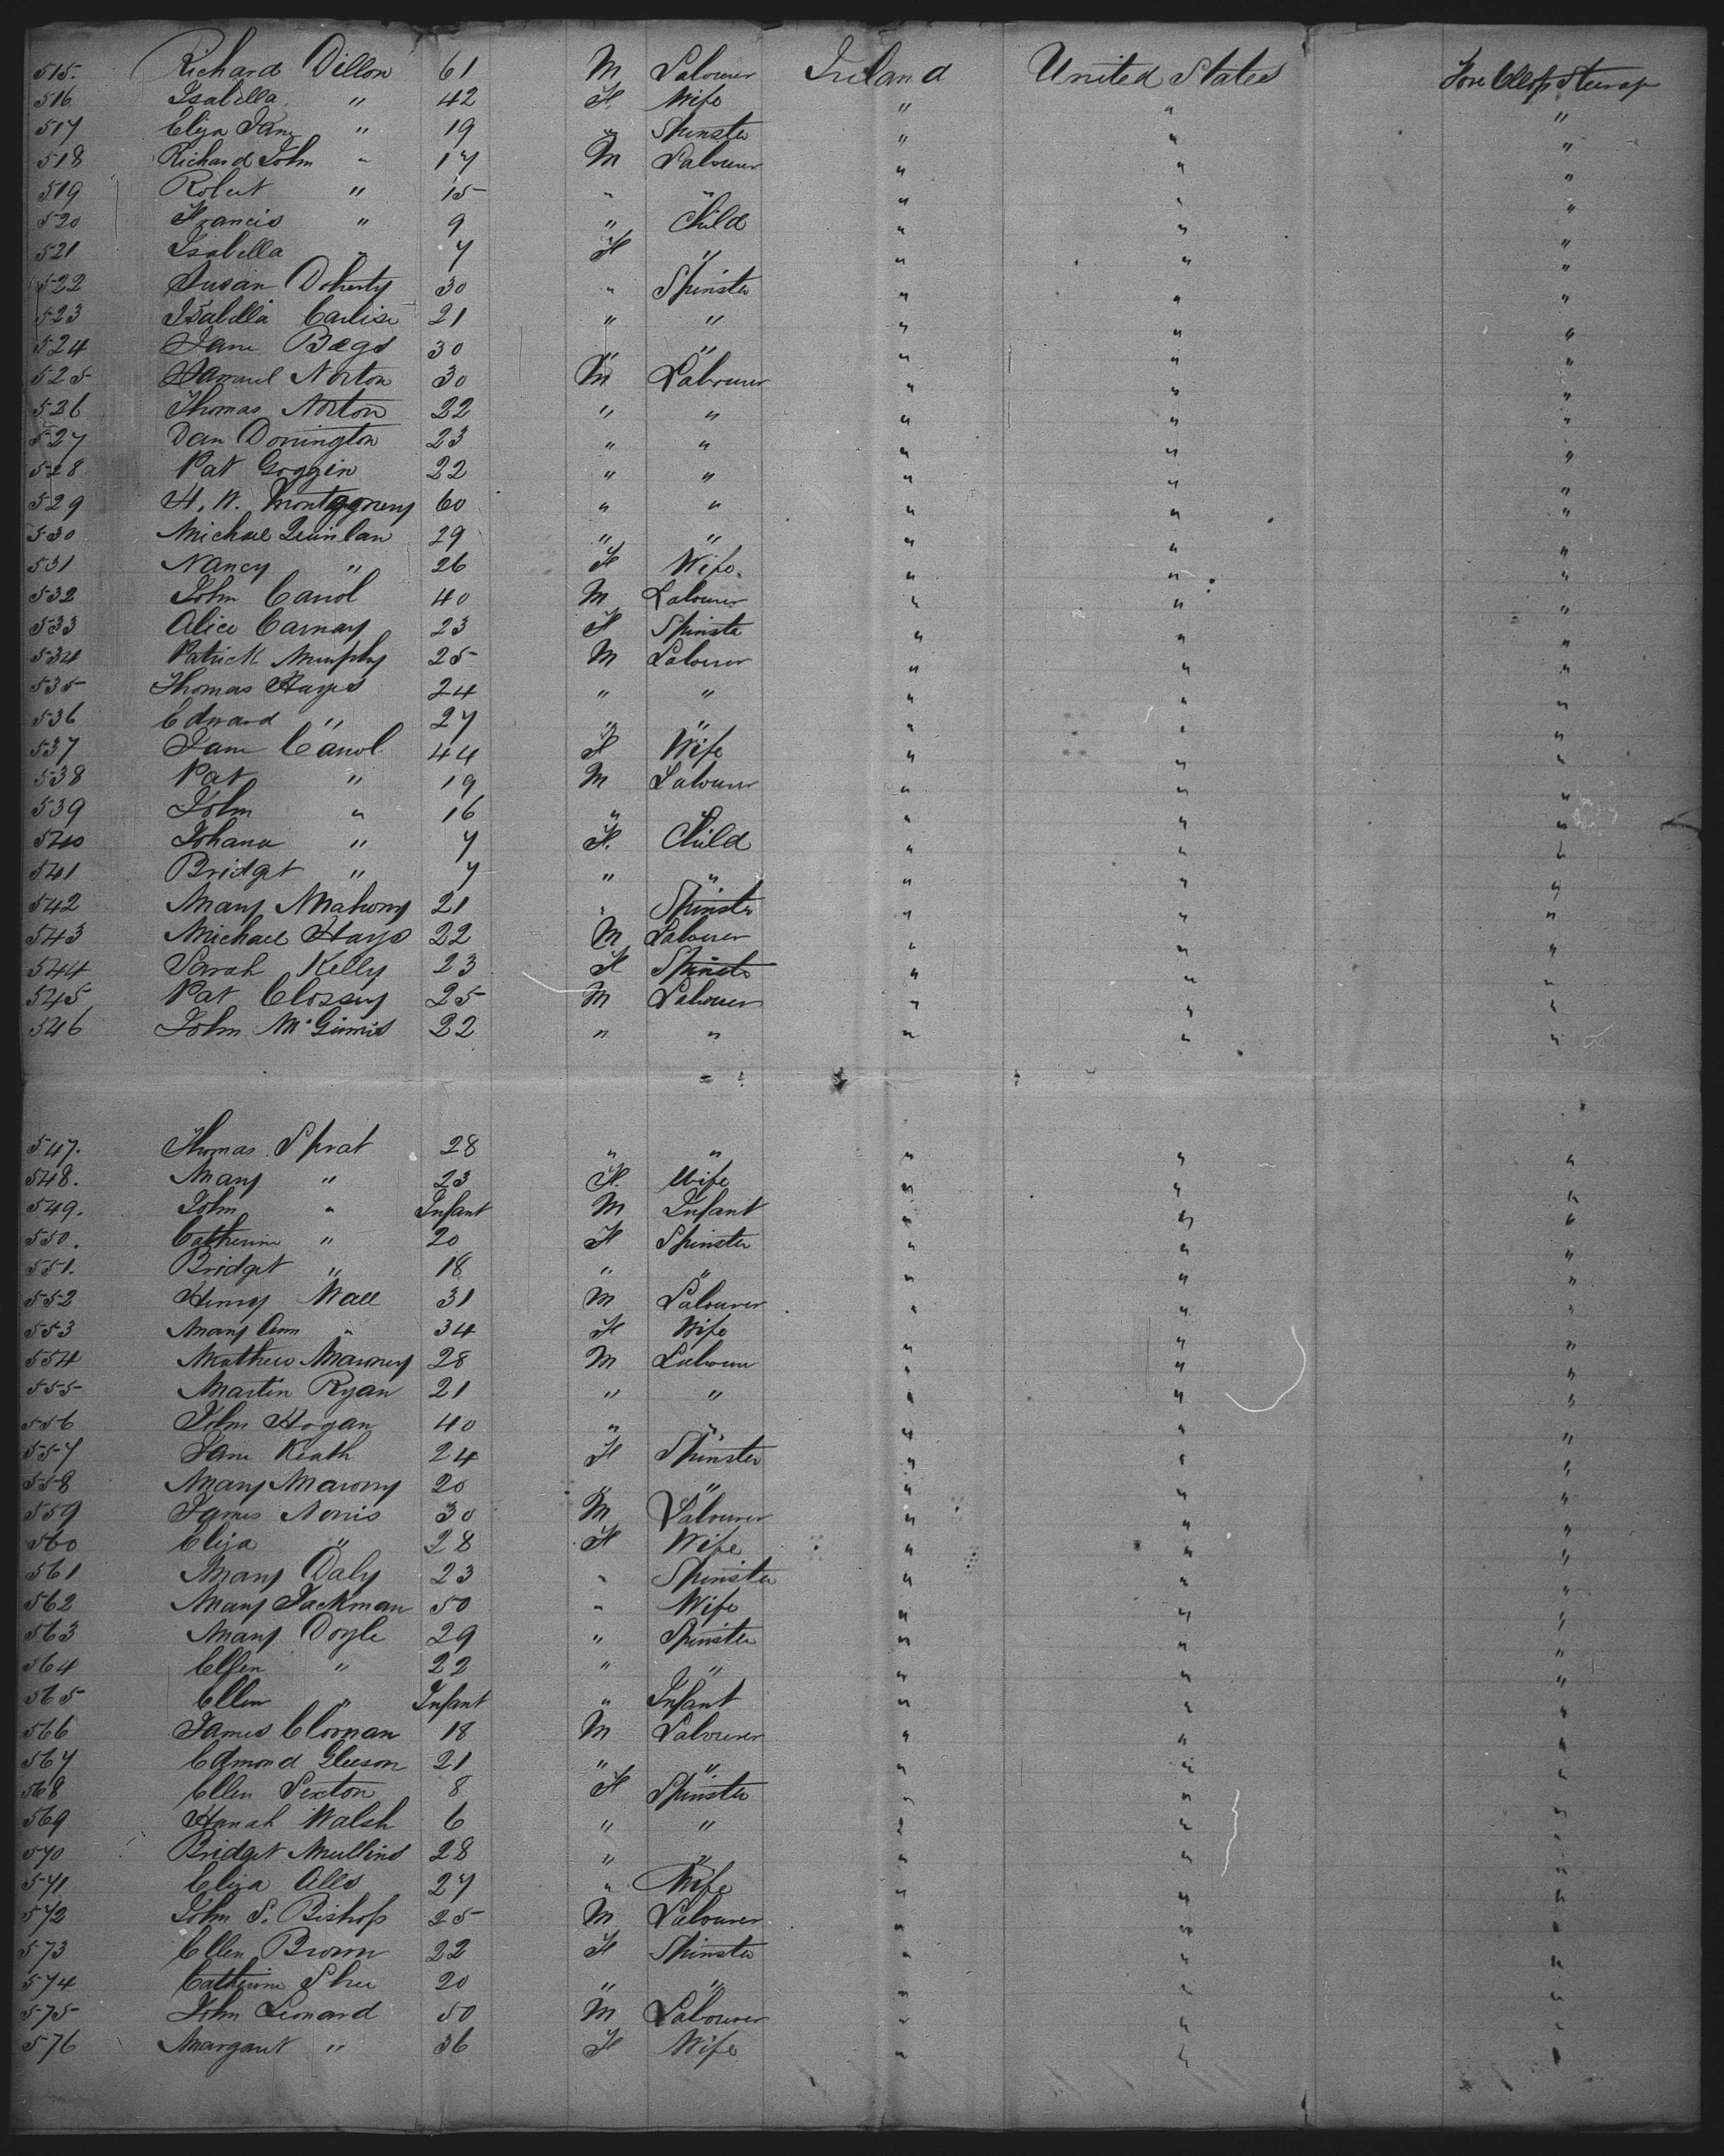 515. Richard Dillon 61 M Labourer Ireland United States Fore
516 Isabella " 42 F. Wife " " "
517 Eliza Jane " 19 " Spinster " " "
518 Richard John " 17 M Labourer " " "
519 Robert " 15 " " " " "
520 Francis " 9 " Child " " "
521 Isabella " 7 F " " " "
522 Susan Doherty 30 " Spinster " " "
523 Isabella Carlise 21 " " " " "
524 Jane Bags 30 " " " " "
525 Samuel Norton 30 M Labourer " " "
526 Thomas Norton 22 " " " " "
527 Dan Donington 23 " " " " "
528 Pat Goggin 22 " " " " "
529 H. W. Montgomery 60 " " " " "
530 Michael Quinlan 29 " " " " "
531 Nancy " 26 F Wife " " "
532 John Carrol 40 M Labourer " " "
533 Alice Carnay 23 F Spinster " " "
534 Patrick Murphy 25 M Labourer " " "
535 Thomas Hayes 24 " " " " "
536 Edward " 27 " " " " "
537 Jane Carrol 44 F Wife " " "
538 Pat " 19 M Labourer " " "
539 John " 16 " " " " "
540 Johana " 7 F. Child " " "
541 Bridget " 7 " " " " "
542 Mary Mahony 21 " Spinster " " "
543 Michael Hays 22 M Labourer " " "
544 Sarah Kelly 23 F Spinster " " "
545 Pat Clossey 25 M Labourer " " "
546 John McGinnis 22 " " " " "
547. Thomas Sprat 28 " " " " "
548. Mary " 23 F. Wife " " "
549. John " Infant M Infant " " "
550. Catherine " 20 F Spinster " " "
551. Bridget " 18 " " " " "
552 Henry Wall 31 M Labourer " " "
553 Mary Ann " 34 F Wife " " "
554 Mathew Marony 28 M Labourer " " "
555 Martin Ryan 21 " " " " "
556 John Hogan 40 " " " " "
557 Jane Keath 24 F Spinster " " "
558 Mary Marony 20 " " " " "
559 James Norris 30 M Labourer " " "
560 Eliza " 28 F Wife " " "
561 Mary Daly 23 " Spinster " " "
562 Mary Jackman 50 " Wife " " "
563 Mary Doyle 29 " Spinster " " "
564 Ellen " 22 " " " " "
565 Ellen " Infant " Infant " " "
566 James Cloonan 18 M Labourer " " "
567 Edmond Gleeson 21 " " " " "
568 Ellen Sexton 8 F Spinster " " "
569 Hanah Walsh 6 " " " " "
570 Bridget Mullins 28 " " " " "
571 Eliza Alls 27 " Wife " " "
572 John S. Bishop 25 M Labourer " " "
573 Ellen Brown 22 F Spinster " " "
574 Catherine Shee 20 " " " " "
575 John Leonard 50 M Labourer " " "
576 Margaret " 36 F Wife " " "